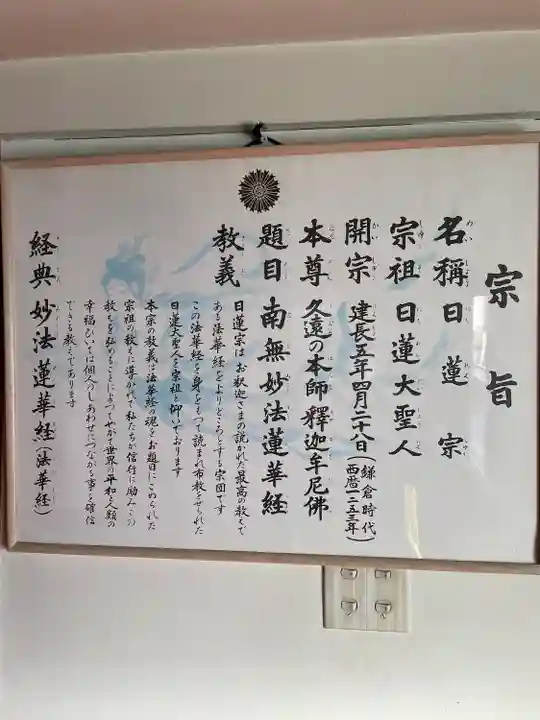 宗旨
名稱 日蓮宗
宗祖 日蓮大聖人
開宗 建長五年四月二十八日(鎌倉時代 西暦一二五三年)
本尊 久遠の本師釋迦牟尼佛
題目 南無妙法蓮華経
教義
日蓮宗はお釈迦さまの説かれた最高の教えで
ある法華経をよりどころとする宗団です
この法華経を身をもって読まれ布教をせられた
日蓮大聖人を宗祖と仰いでおります
本宗の教義は法華経の魂をお題目にこめられた
宗祖の教えに導かれて私たちが信行に励みこの
教えを弘めることによってやがて世界の平和と人類の
幸福ひいては個人のしあわせにつながる事を確信
できる教えであります
経典 妙法蓮華経(法華経)